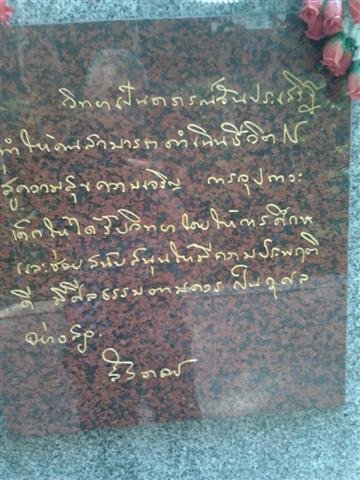 วิทยาเป็นอาภรณ์อันประเสริฐ
ทำให้คนสามารถดำเนินชีวิตไป
สู่ความสุขความเจริญ การอุปการะ
เด็กให้ได้รับวิทยาโดยให้การศึกษา
และช่วยสนับสนุนให้มีความประพฤติ
ดี มีศีลธรรมตามควร เป็นกุศล
อย่างยิ่ง.